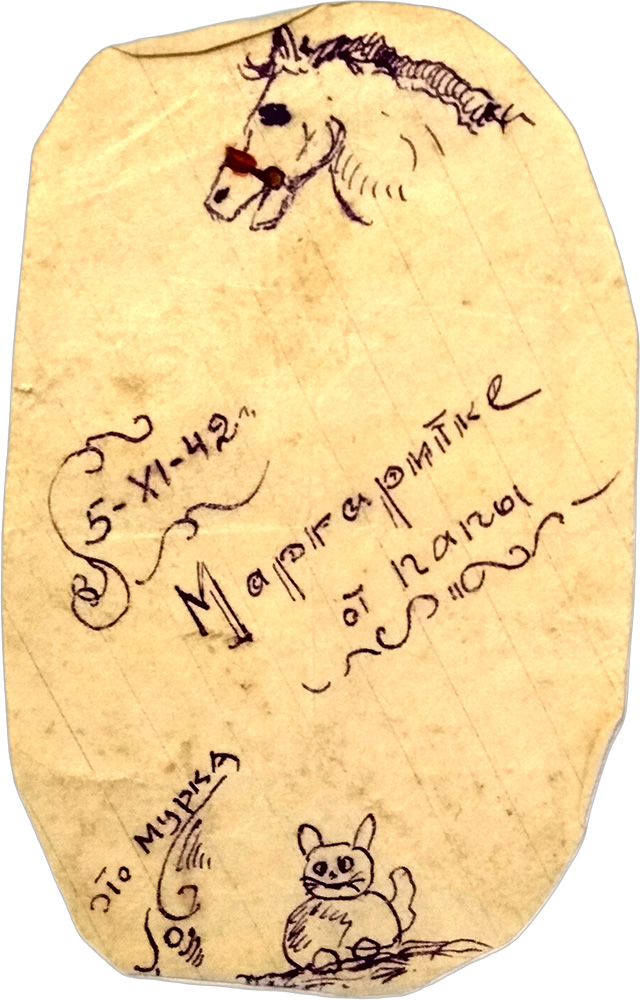 5-XI-42"
Маргаритке
от папы
это Мурка